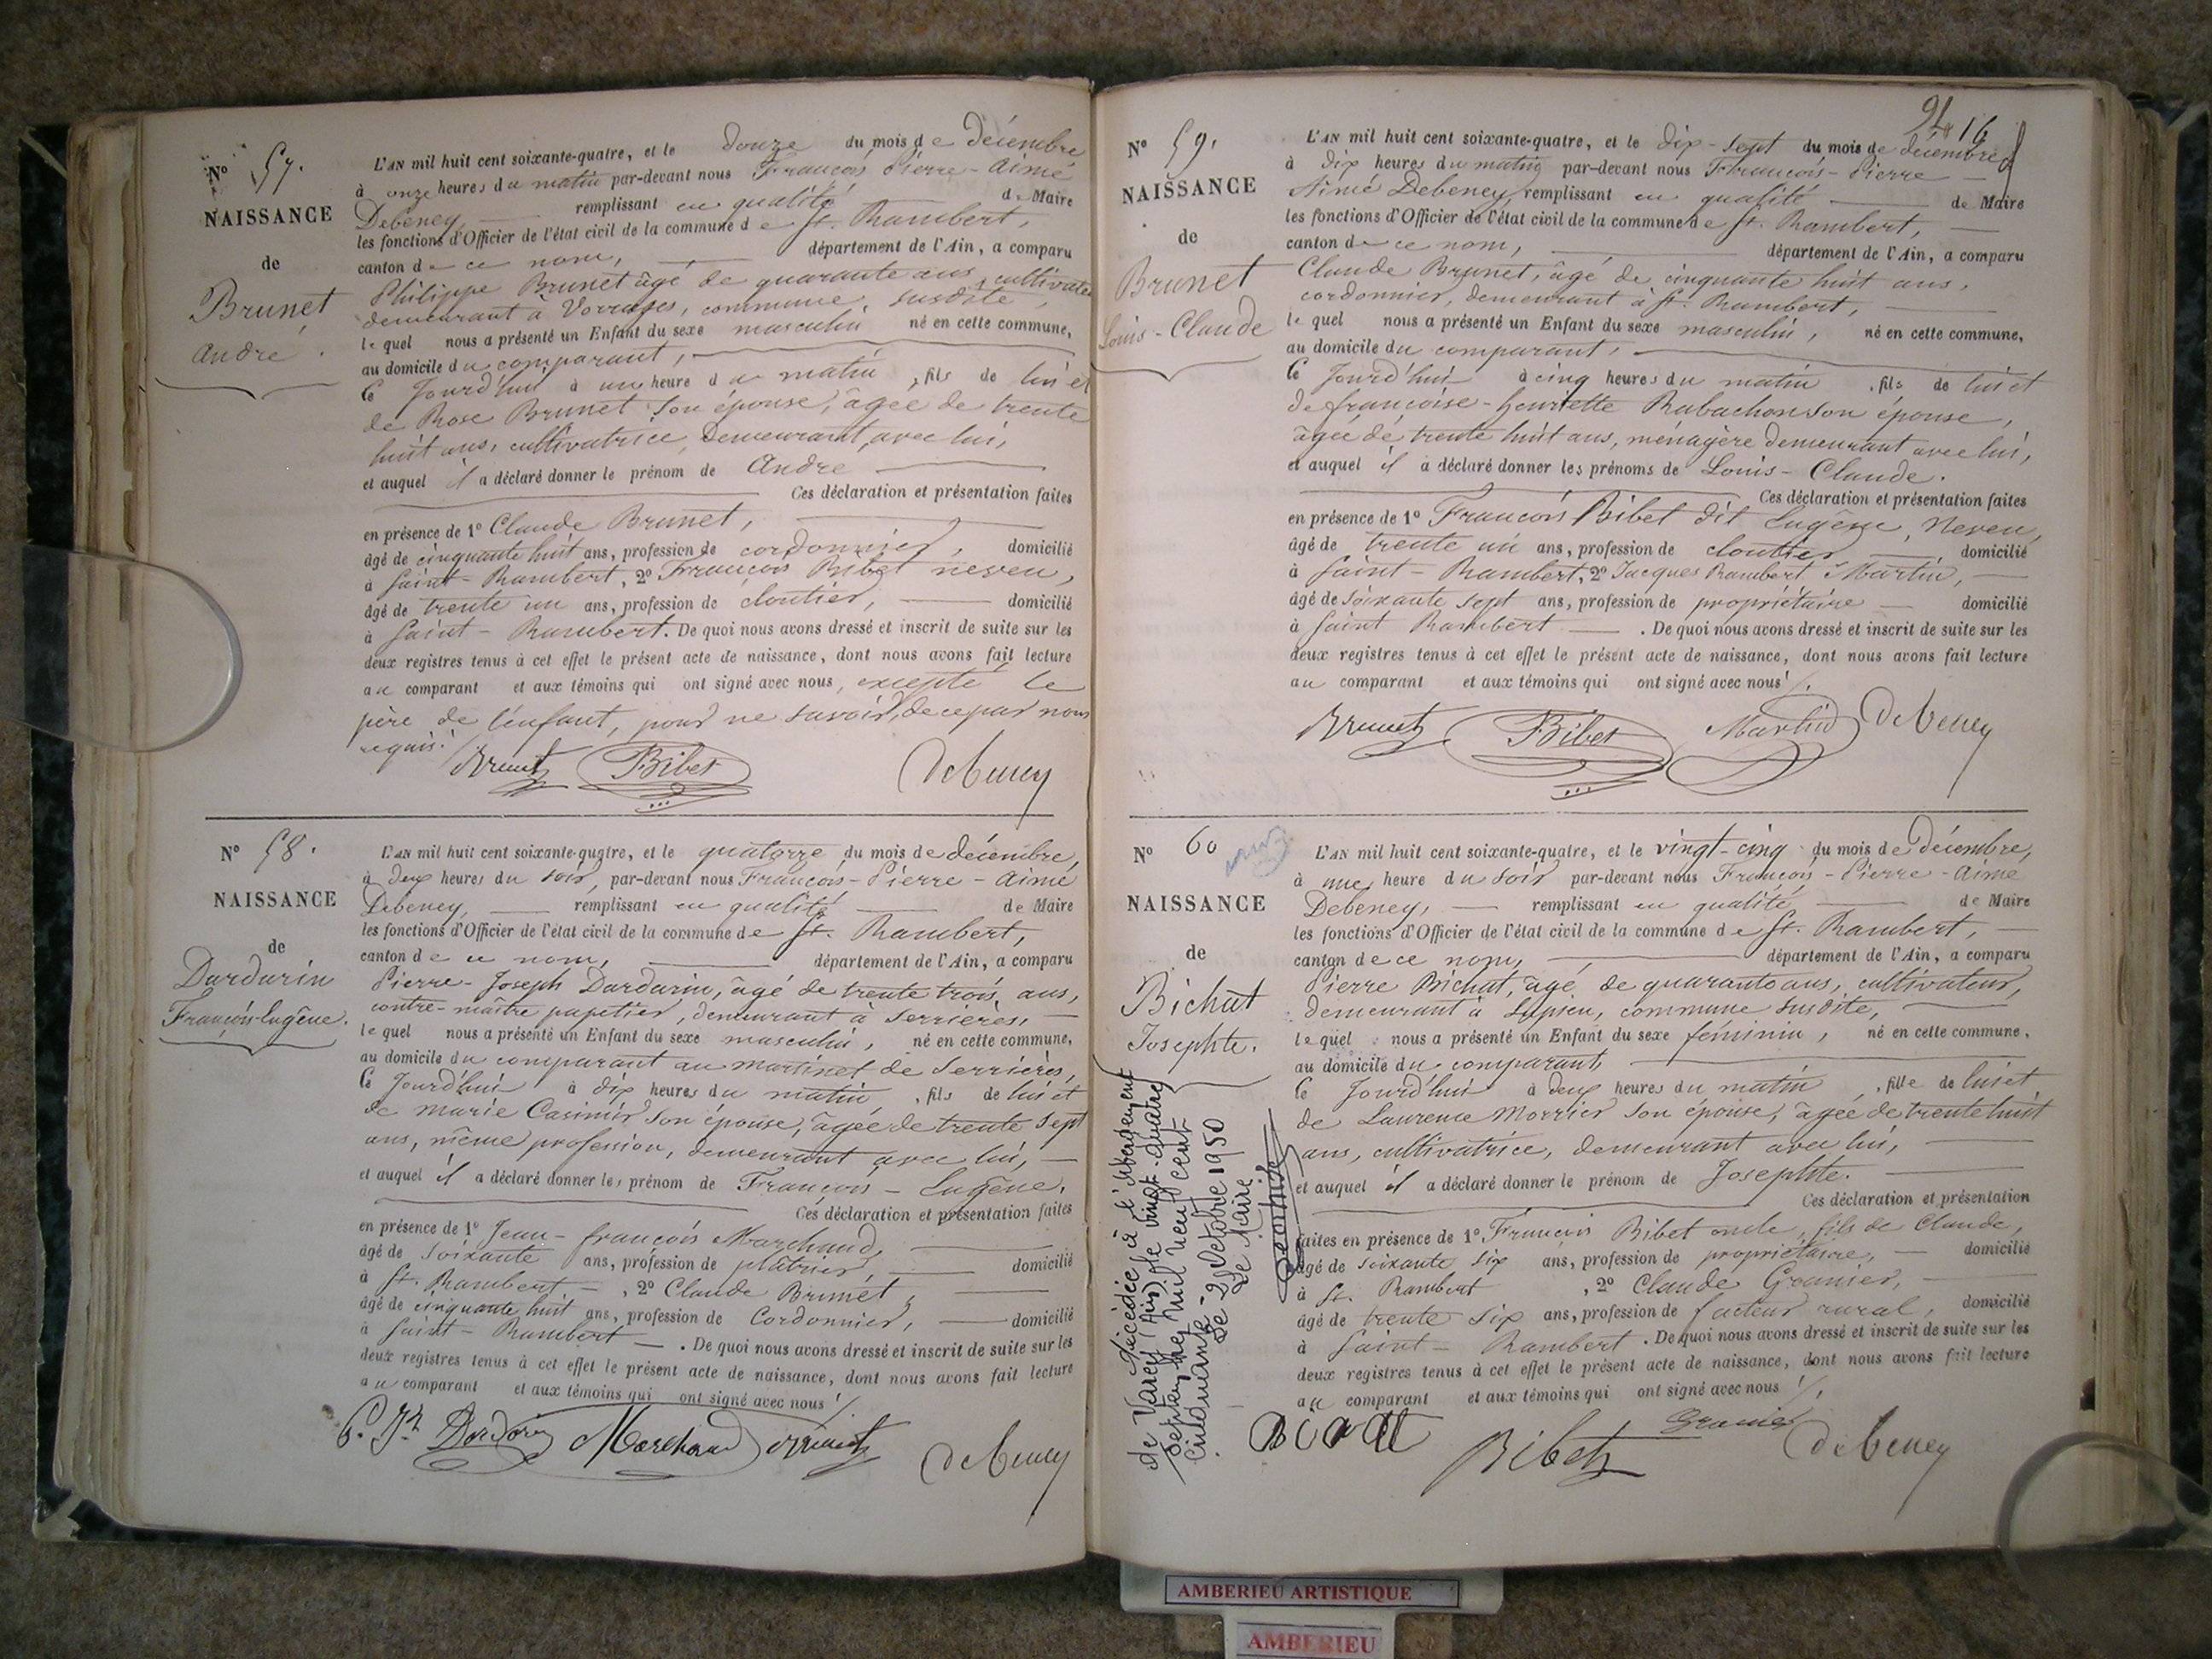 N° 57.
NAISSANCE
de
Brunet
André.
L'AN mil huit cent soixante-quatre, et le douze du mois de décembre
à onze heures du matin par-devant nous François Pierre-Aimé
Debeney, remplissant en qualité de Maire
les fonctions d'Officier de l'état civil de la commune de St. Rambert,
canton de ce nom, département de l'Ain, a comparu
Philippe Brunet âgé de quarante ans, cultivateur
demeurant à Vorrages, commune susdite,
lequel nous a présenté un Enfant du sexe masculin né en cette commune,
au domicile du comparant,
Ce Jourd'hui à une heure du matin, fils de lui et
de Rose Brunet son épouse, âgée de trente
huit ans, cultivatrice, demeurant avec lui,
et auquel il a déclaré donner le prénom de André
Ces déclaration et présentation faites
en présence de 1° Claude Brunet,
âgé de cinquante huit ans, profession de cordonnier, domicilié
à Saint-Rambert, 2° François Bibet neveu,
âgé de trente un ans, profession de cloutier, domicilié
à Saint-Rambert. De quoi nous avons dressé et inscrit de suite sur les
deux registres tenus à cet effet le présent acte de naissance, dont nous avons fait lecture
au comparant et aux témoins qui ont signé avec nous, excepté le
père de l'enfant, pour ne savoir, de ce par nous
requis.
Brunet Bibet Debeney
N° 58.
NAISSANCE
de
Dardarin
François-Eugène.
L'AN mil huit cent soixante-quatre, et le quatorze du mois de décembre,
à deux heures du soir, par-devant nous François-Pierre-Aimé
Debeney, remplissant en qualité de Maire
les fonctions d'Officier de l'état civil de la commune de St. Rambert,
canton de ce nom, département de l'Ain, a comparu
Pierre-Joseph Dardarin, âgé de trente trois ans,
contre-maître papetier, demeurant à Serrières,
lequel nous a présenté un Enfant du sexe masculin, né en cette commune,
au domicile du comparant au martinet de Serrières,
Ce Jourd'hui à dix heures du matin, fils de lui et
de Marie Casimir son épouse, âgée de trente sept
ans, même profession, demeurant avec lui,
et auquel il a déclaré donner les prénom de François-Eugène.
Ces déclaration et présentation faites
en présence de 1° Jean-françois Marchand,
âgé de soixante ans, profession de plâtrier, domicilié
à St. Rambert, 2° Claude Brunet,
âgé de cinquante huit ans, profession de Cordonnier, domicilié
à Saint-Rambert. De quoi nous avons dressé et inscrit de suite sur les
deux registres tenus à cet effet le présent acte de naissance, dont nous avons fait lecture
au comparant et aux témoins qui ont signé avec nous
Marchand Brunet Debeney
94 16
N° 59.
NAISSANCE
de
Brunet
Louis-Claude
L'AN mil huit cent soixante-quatre, et le dix-sept du mois de décembre
à dix heures du matin par-devant nous François-Pierre
Aimé Debeney, remplissant en qualité de Maire
les fonctions d'Officier de l'état civil de la commune de St. Rambert,
canton de ce nom, département de l'Ain, a comparu
Claude Brunet, âgé de cinquante huit ans,
cordonnier, demeurant à St. Rambert,
lequel nous a présenté un Enfant du sexe masculin, né en cette commune,
au domicile du comparant,
Ce Jourd'hui à cinq heures du matin, fils de lui et
de françoise-henriette Rabachon son épouse,
âgée de trente huit ans, ménagère demeurant avec lui,
et auquel il a déclaré donner les prénoms de Louis-Claude.
Ces déclaration et présentation faites
en présence de 1° François Bibet dit Eugène, Neveu,
âgé de trente un ans, profession de cloutier, domicilié
à Saint-Rambert, 2° Jacques Rambert Martin,
âgé de soixante sept ans, profession de propriétaire domicilié
à Saint Rambert. De quoi nous avons dressé et inscrit de suite sur les
deux registres tenus à cet effet le présent acte de naissance, dont nous avons fait lecture
au comparant et aux témoins qui ont signé avec nous.
Brunet Bibet Martin Debeney
N° 60
NAISSANCE
de
Bichat
Josephte.
L'AN mil huit cent soixante-quatre, et le vingt-cinq du mois de décembre,
à une heure du soir par-devant nous François-Pierre-Aimé
Debeney, remplissant en qualité de Maire
les fonctions d'Officier de l'état civil de la commune de St. Rambert,
canton de ce nom, département de l'Ain, a comparu
Pierre Bichat, âgé de quarante ans, cultivateur,
demeurant à Lupieu, commune susdite,
lequel nous a présenté un Enfant du sexe féminin, né en cette commune,
au domicile du comparant,
Ce Jourd'hui à deux heures du matin, fille de lui et
de Laurence Morrier son épouse, âgée de trente huit
ans, cultivatrice, demeurant avec lui,
et auquel il a déclaré donner le prénom de Josephte.
Ces déclaration et présentation
faites en présence de 1° François Bibet oncle, fils de Claude,
âgé de soixante six ans, profession de propriétaire, domicilié
à St. Rambert, 2° Claude Granier,
âgé de trente six ans, profession de facteur rural, domicilié
à Saint-Rambert. De quoi nous avons dressé et inscrit de suite sur les
deux registres tenus à cet effet le présent acte de naissance, dont nous avons fait lecture
au comparant et aux témoins qui ont signé avec nous.
Bibet Granier Debeney
Décédée à l'Abergement
de Varey (Ain) le vingt-quatre
Septembre mil neuf cent
cinquante
Le 2 Octobre 1950
Le Maire
AMBERIEU ARTISTIQUE
AMBERIEU